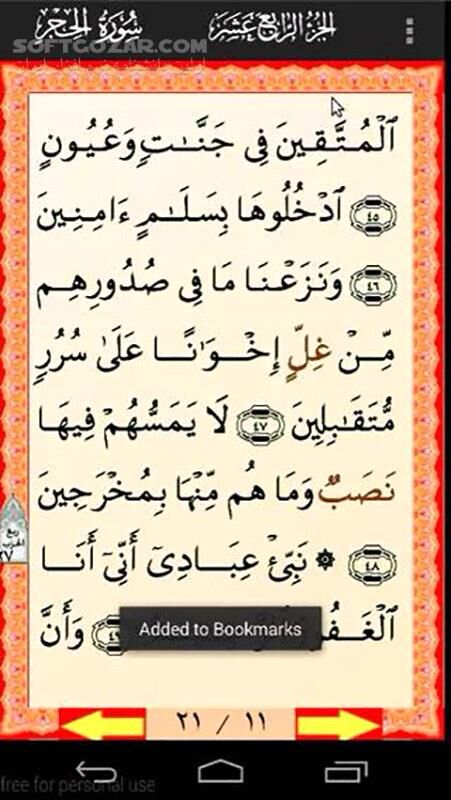 سُورَةُ الحِجر الجزء الرابع عشر
SOFTGOZAR.COM
اولین دانشنامه نرم افزار ایران
ٱلْمُتَّقِينَ فِى جَنَّـٰتٍ وَعُيُونٍ
٤٥ ٱدْخُلُوهَا بِسَلَـٰمٍ ءَامِنِينَ
٤٦ وَنَزَعْنَا مَا فِى صُدُورِهِم
مِّنْ غِلٍّ إِخْوَٰنًا عَلَىٰ سُرُرٍ
مُّتَقَـٰبِلِينَ ٤٧ لَا يَمَسُّهُمْ فِيهَا
نَصَبٌ وَمَا هُم مِّنْهَا بِمُخْرَجِينَ
٤٨ ۞ نَبِّئْ عِبَادِىٓ أَنِّىٓ أَنَا
وَأَنَّ
ربع
الحزب
٢٧
Added to Bookmarks
٢١ / ١١
free for personal use